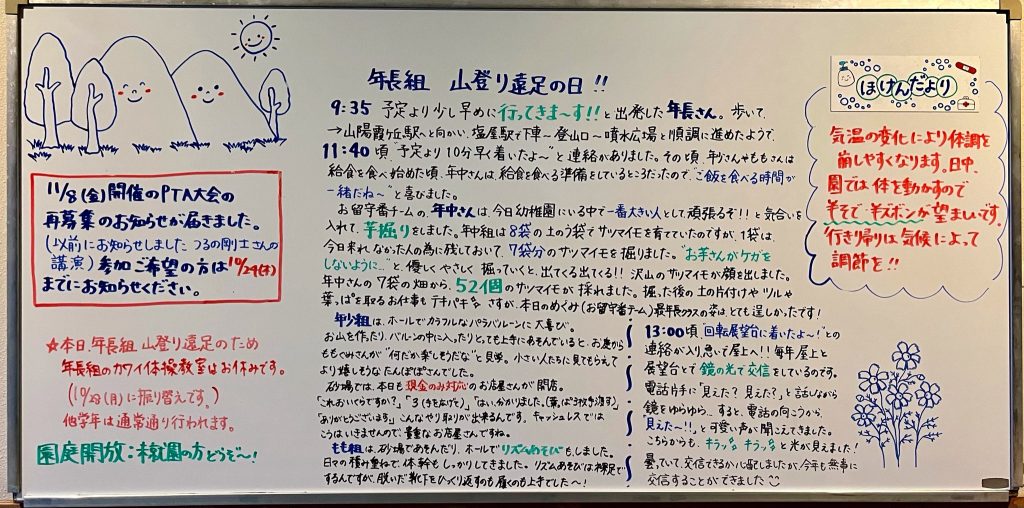 年長組 山登り遠足の日!!
9:35 予定より少し早めに行ってきま〜す!!と出発した年長さん。歩いて、
→山陽霞ヶ丘駅へと向かい、塩屋駅で下車〜登山口〜噴水広場と順調に進めたようで、
11:40頃"予定より10分早く着いたよ〜"と連絡がありました。その頃、年少さんやももさんは
給食を食べ始めた頃、年中さんは、給食を食べる準備をしているところだったので、"ご飯を食べる時間が
一緒だね〜"と喜びました。
お留守番チームの、年中さんは、今日幼稚園にいる中で一番大きい人として頑張るぞ!!と気合いを
入れて、芋掘りをしました。年中組は8袋の土のう袋でサツマイモを育てていたのですが、1袋は、
今日来れなかった人の為に残しておいて、7袋分のサツマイモを掘りました。"お芋さんがケガを
しないように…"と、優しくやさしく掘っていくと、出てくる出てくる!!沢山のサツマイモが顔を出しました。
年中さんの7袋の畑から、52個のサツマイモが採れました。掘った後の土の片付けやツルや
葉っぱを取るお仕事もテキパキ。さすが、本日のめぐみ(お留守番チーム)最年長クラスの姿は、とても逞しかったです!
年少組は、ホールでカラフルなパラバルーンに大喜び。
お山を作たり、バルンの中に入ったりと、とても上手にあそんでいると、お庭から
ももぐみさんが"何だか楽しそうだな"と見学。小さい人たちに見てもらえて
より嬉しそうなたんぽぽさんでした。
砂場では、本日も現金のみ対応のお店屋さんが開店。
「これおいくらですか?」「3(指をひろげて)」「はい、分かりました。(葉っぱを3枚手渡す)」
「ありがとうございます。」こんなやり取りが出来るんです。キャッシュレスでは
こうはいきませんので、貴重なお店屋さんですね。
もも組は、砂場であそんだり、ホールでリズムあそびもしました。
日々の積み重ねで、体幹もしっかりしてきました。リズムあそびは裸足で
するんですが、脱いだ靴下をひっくり返すのも履くのも上手でした〜!
13:00頃「回転展望台に着いたよ〜!」との
連絡が入り、急いで屋上へ!!毎年屋上と
展望台とで鏡の光で交信をしているのです。
電話片手に「見えた?見えた?」と話しながら
鏡をゆらゆら…すると、電話の向こうから、
見えた〜!!と可愛い声が聞こえてきました。
こちらからも、キラッ キラッと光が見えました!
曇っていて、交信できるか心配しましたが、今年も無事に
交信することができました
11/8(金)開催のPTA大会の
再募集のお知らせが届きました。
(以前にお知らせしました つるの剛士さんの
講演)参加ご希望の方は10/29(火)
までにお知らせください。
☆本日、年長組 山登り遠足のため
年長組のカワイ体操教室はお休みです。
(10/28(月)に振り替えです。)
他学年は通常通り行われます。
園庭開放:未就園の方どうぞ〜!
ほけんだより
気温の変化により体調を
崩しやすくなります。日中、
園では体を動かすので
半そで、半ズボンが望ましいです。
行き帰りは気候によって
調節を!!